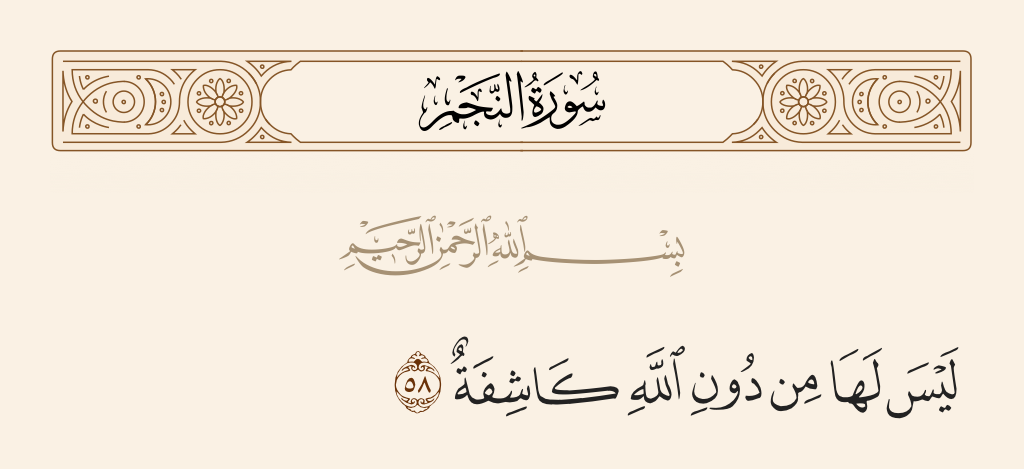 سُورَةُ النَّجْمِ
بِسْمِ ٱللَّهِ ٱلرَّحْمَٰنِ ٱلرَّحِيمِ
لَيْسَ لَهَا مِن دُونِ ٱللَّهِ كَاشِفَةٌ ٥٨